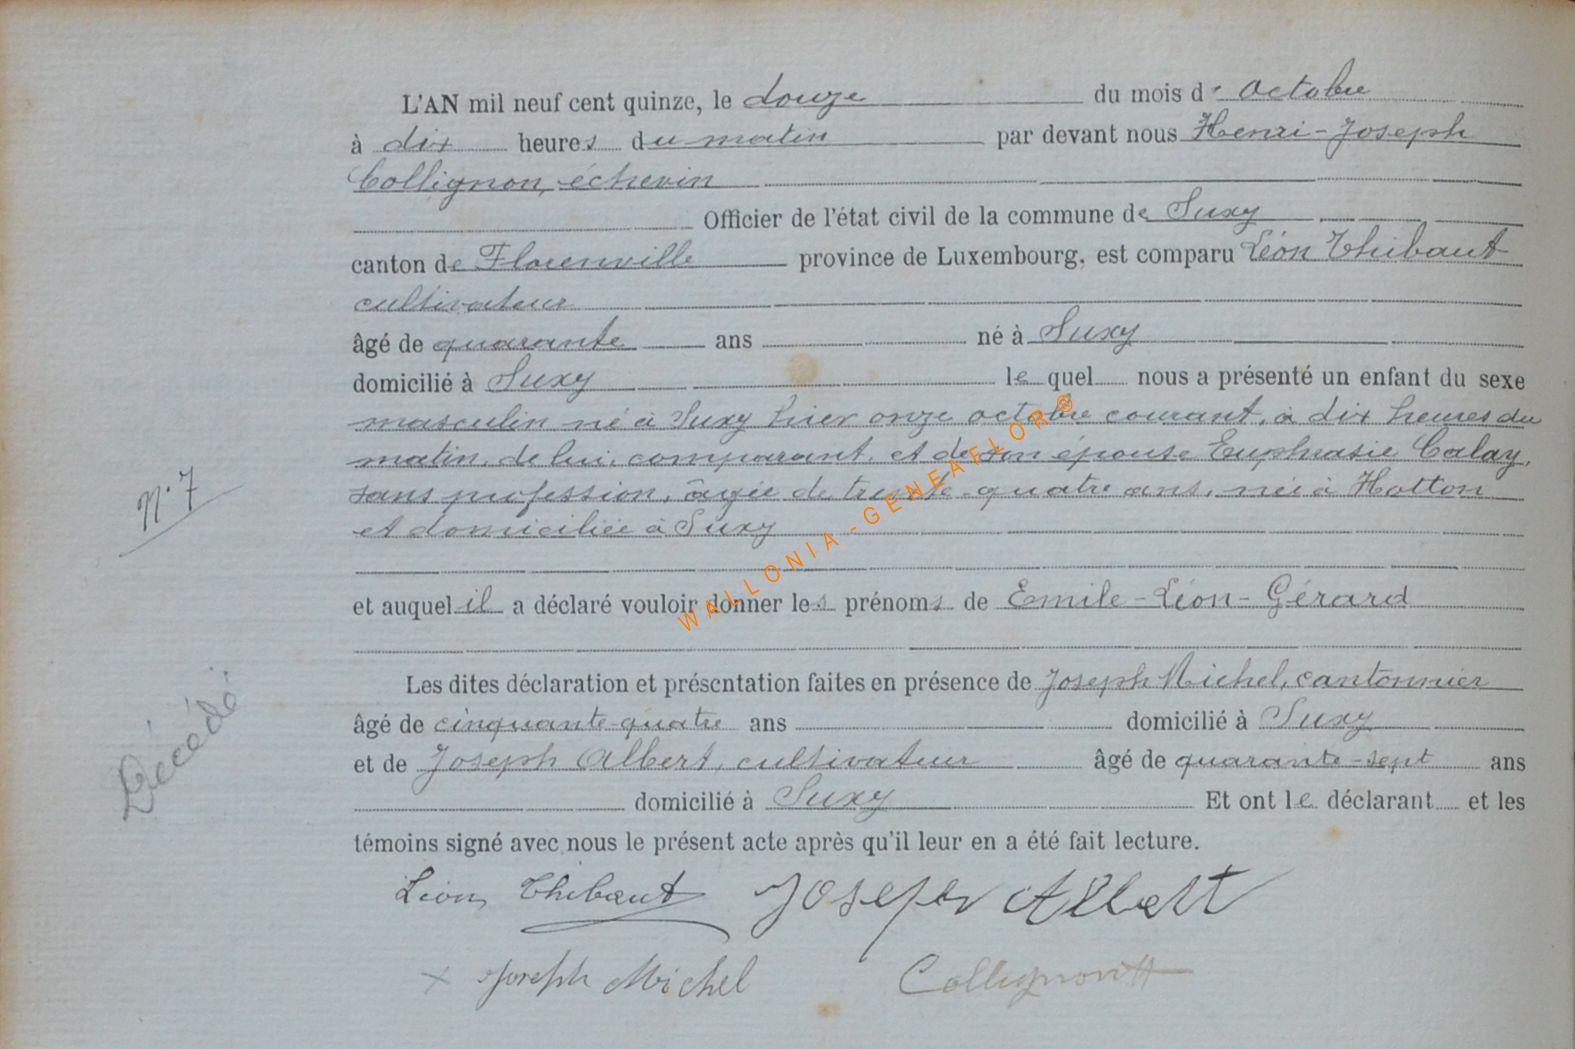 L'AN mil neuf cent quinze, le douze du mois d'octobre
à dix heures du matin par devant nous Henri-Joseph
Collignon, échevin
Officier de l'état civil de la commune de Suxy
canton de Florenville province de Luxembourg, est comparu Léon Thibaut
cultivateur
âgé de quarante ans né à Suxy
domicilié à Suxy lequel nous a présenté un enfant du sexe
masculin né à Suxy hier onze octobre courant, à dix heures du
matin, de lui, comparant, et de son épouse Euphrasie Calay,
sans profession, âgée de trente-quatre ans, née à Hotton
et domiciliée à Suxy
N° 7
et auquel il a déclaré vouloir donner les prénoms de Emile-Léon-Gérard
Les dites déclaration et présentation faites en présence de Joseph Michel, cantonnier
âgé de cinquante-quatre ans domicilié à Suxy
et de Joseph Albert, cultivateur âgé de quarante-sept ans
domicilié à Suxy Et ont le déclarant et les
témoins signé avec nous le présent acte après qu'il leur en a été fait lecture.
Décédé
Léon Thibaut Joseph Albert
x Joseph Michel Collignon H
WALLONIA-GENEAFLOR®